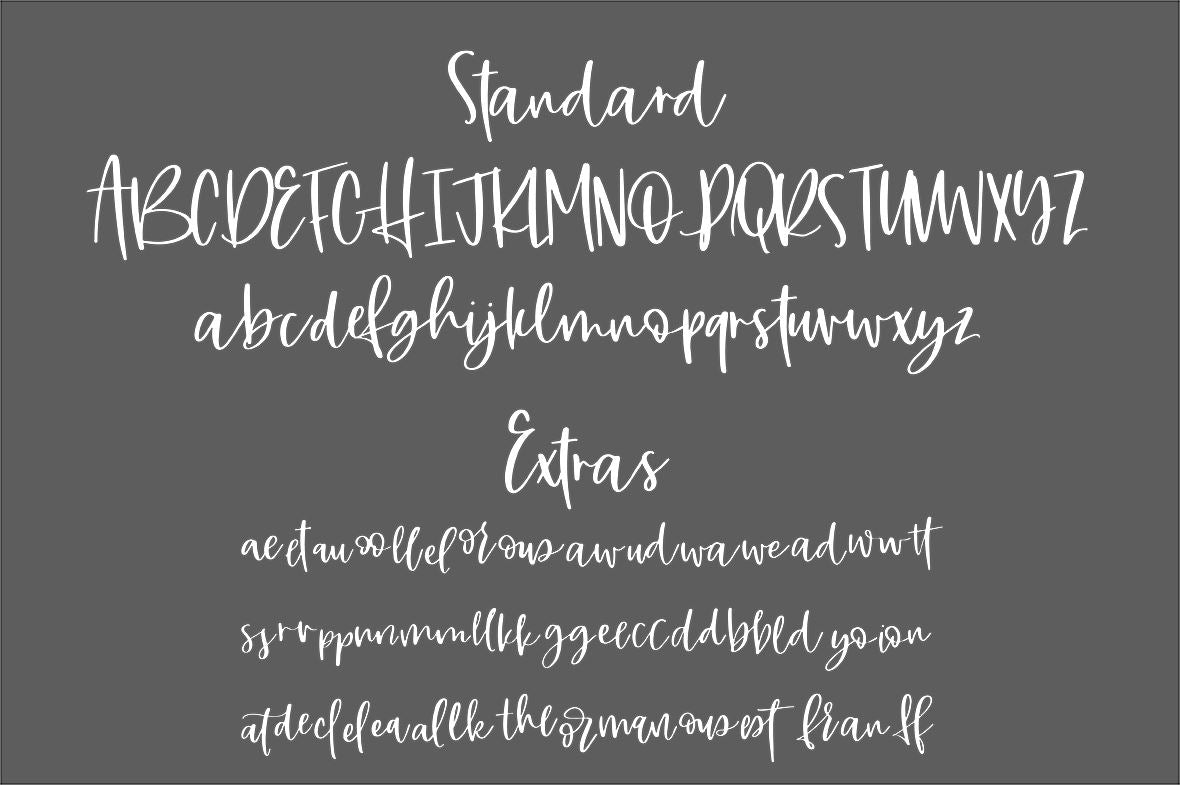 Standard
ABCDEFGHIJKLMNOPQRSTUVWXYZ
abcdefghijklmnopqrstuvwxyz
Extras
aeetauoollelorousawudwaweadwwtt
ssrrppnnmmllkkggeeccddbbldyoion
atdecleleaallkktheormanousestfranff